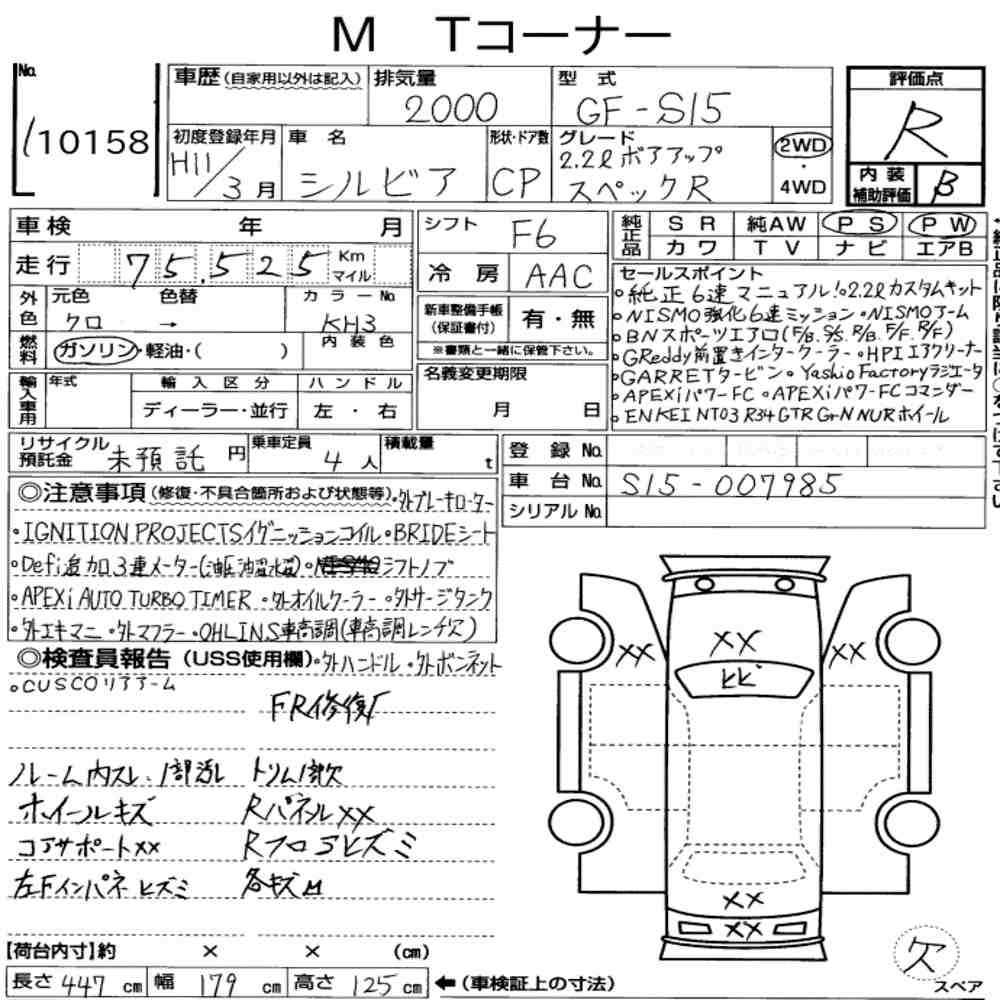 M Tコーナー
No. 110158
車歴(自家用以外は記入) 排気量 2000 型式 GF-S15
評価点 R
初度登録年月 H11/3月 車名 シルビア 形状・ドア数 CP
グレード 2.2ℓボアアップ スペックR 2WD・4WD
内装補助評価 B
車検 年 月
走行 75,525 Km マイル
シフト F6
冷房 AAC
純正品 SR 純AW PS PW
カワ TV ナビ エアB
外色 元色 クロ 色替 → カラーNo KH3
内装色
燃料 ガソリン・軽油・( )
新車整備手帳(保証書付) 有・無
※書類と一緒に保管下さい。
名義変更期限 月 日
輸入車用 年式 輸入区分 ディーラー・並行 ハンドル 左・右
セールスポイント
・純正6速マニュアル!・2.2ℓカスタムキット
・NISMO強化6速ミッション・NISMOアーム
・BNスポーツエアロ(F/B. S/S. R/B. F/F. R/F)
・GReddy前置きインタークーラー・HPIエアクリーナー
・GARRETタービン・Yashio Factoryラジエータ
・APEXiパワーFC・APEXiパワーFCコマンダー
・ENKEI NT03 R34 GTR Gr-N NURホイール
リサイクル預託金 未預託 円 乗車定員 4人 積載量 t
登録No.
車台No. S15-007985
シリアルNo.
◎注意事項(修復・不具合箇所および状態等)・外ブレーキローター
・IGNITION PROJECTSイグニッションコイル・BRIDEシート
・Defi追加3連メーター(油圧油温水温)・シフトノブ
・APEXi AUTO TURBO TIMER・外オイルクーラー・外サージタンク
・外エキマニ・外マフラー・OHLINS車高調(車高調レンチ欠)
◎検査員報告(USS使用欄)・外ハンドル・外ボンネット
・CUSCOリアアーム
FR修復厂
ルーム内スレ、1部汚レ トリム1部欠
ホイールキズ Rパネル××
コアサポート×× Rフロアヒズミ
左Fインパネヒズミ 各キズ凹
××
×× ××
ヒビ
××
××
欠
スペア
【荷台内寸】約 × × (cm)
長さ 447 cm 幅 179 cm 高さ 125 cm ←(車検証上の寸法)